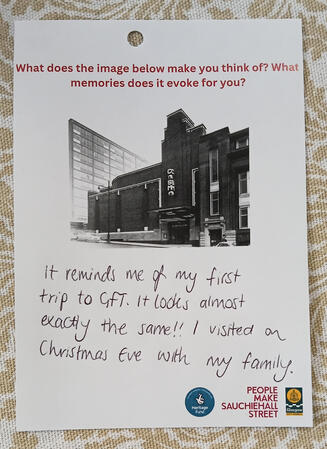 What does the image below make you think of? What
memories does it evoke for you?
It reminds me of my first
trip to GFT. It looks almost
exactly the same!! I visited on
Christmas Eve with my family.
Heritage
Fund
PEOPLE
MAKE
SAUCHIEHALL
STREET